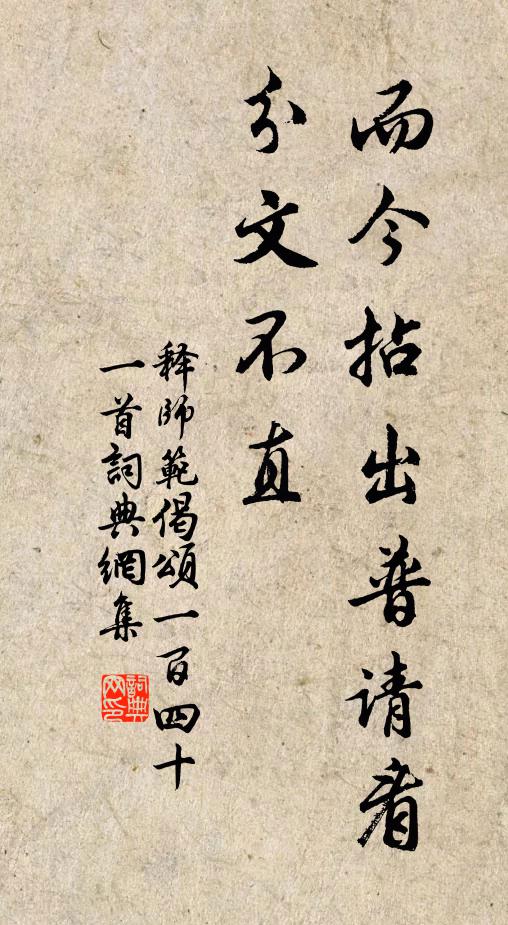 而今拈出普请看
分文不直
释師範偈頌一百四十
一首詞典網集
詞典网印